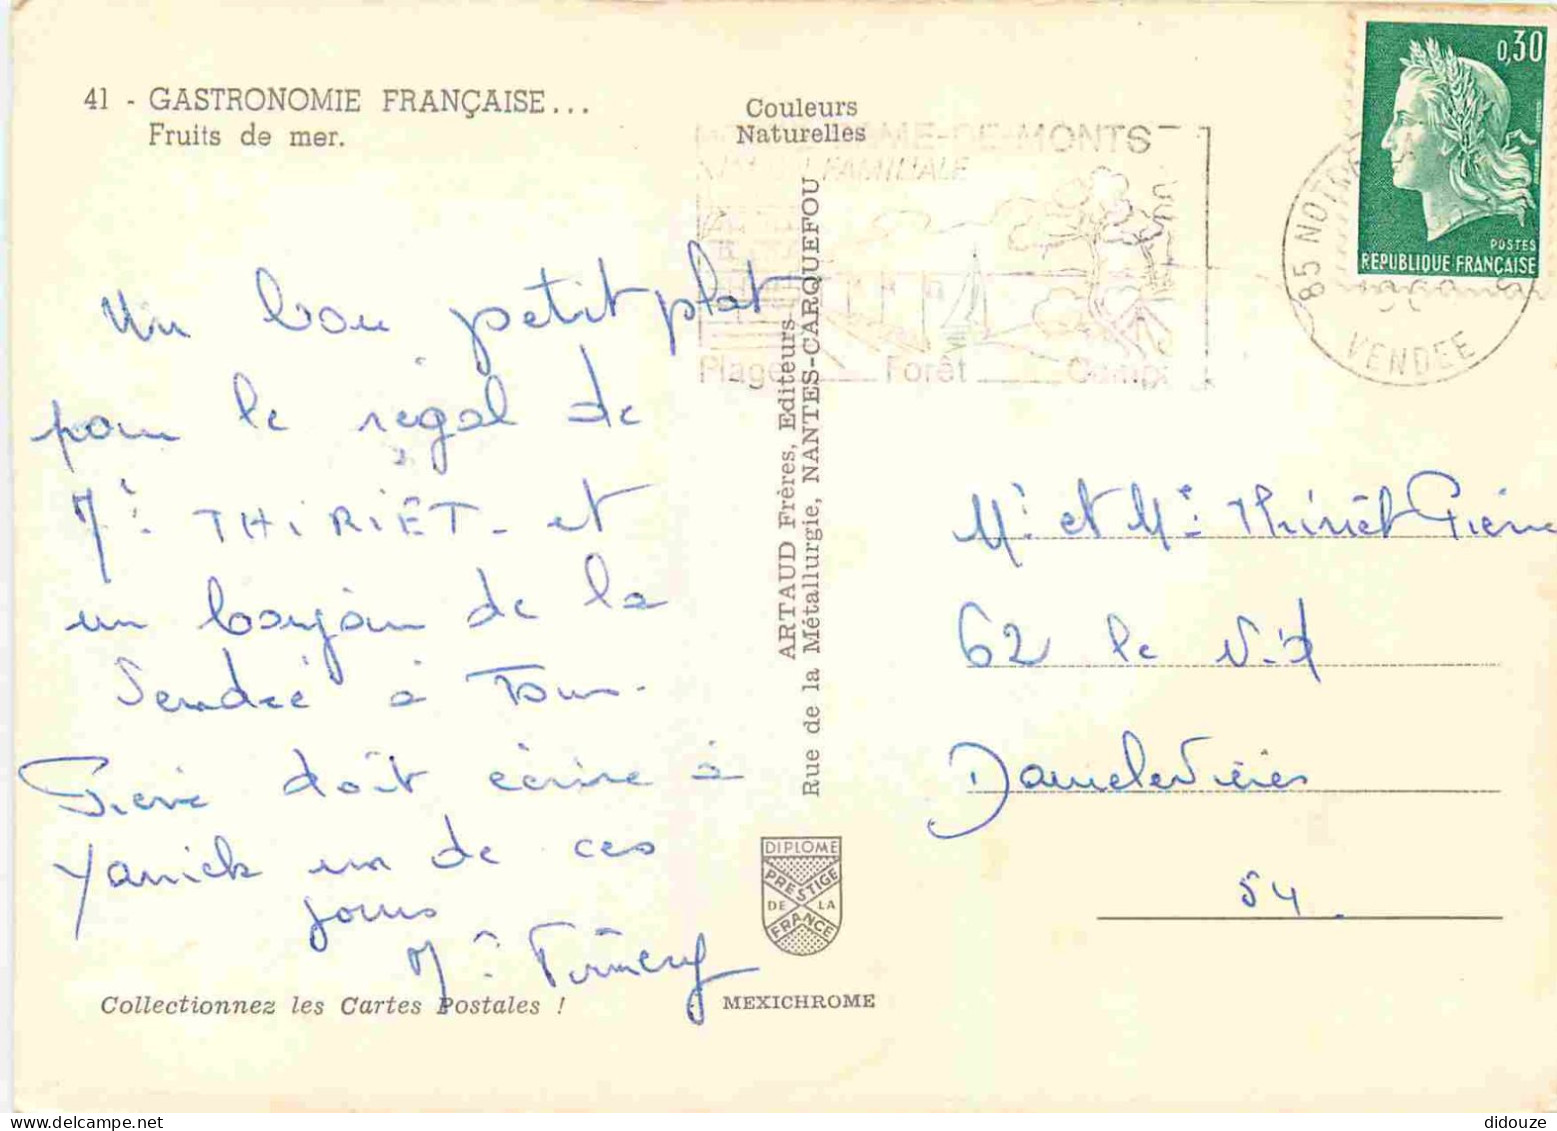 41 - GASTRONOMIE FRANÇAISE...
Fruits de mer.
Couleurs
Naturelles
0,30
POSTES
REPUBLIQUE FRANÇAISE
DAME-DE-MONTS
FAMILIALE
Plage Forêt Camp
85 NOTRE
VENDEE
Un bon petit plat
pour le régal de
Mr THIRIET - et
un bonjour de la
Vendée à Tous.
Pierre doit écrire à
Yanick un de ces
jours
ARTAUD Frères, Editeurs
Rue de la Métallurgie, NANTES-CARQUEFOU
Mr et Me Thiriet Pierre
62 le
Damelevières
54.
DIPLOME
PRESTIGE
DE LA
FRANCE
Collectionnez les Cartes Postales !
MEXICHROME
didouze